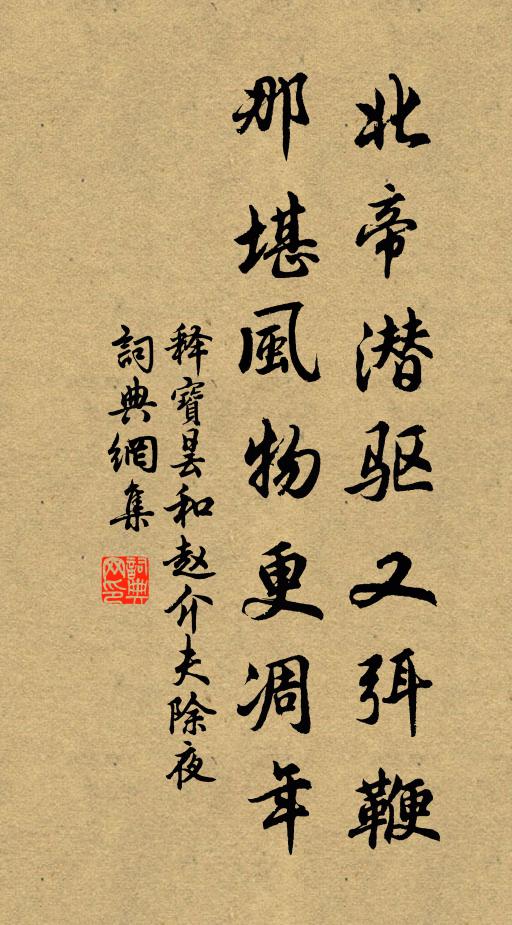 北帝潜驱又弭鞭
那堪風物更凋年
释寶昙和赵介夫除夜
詞典網集
詞典网印